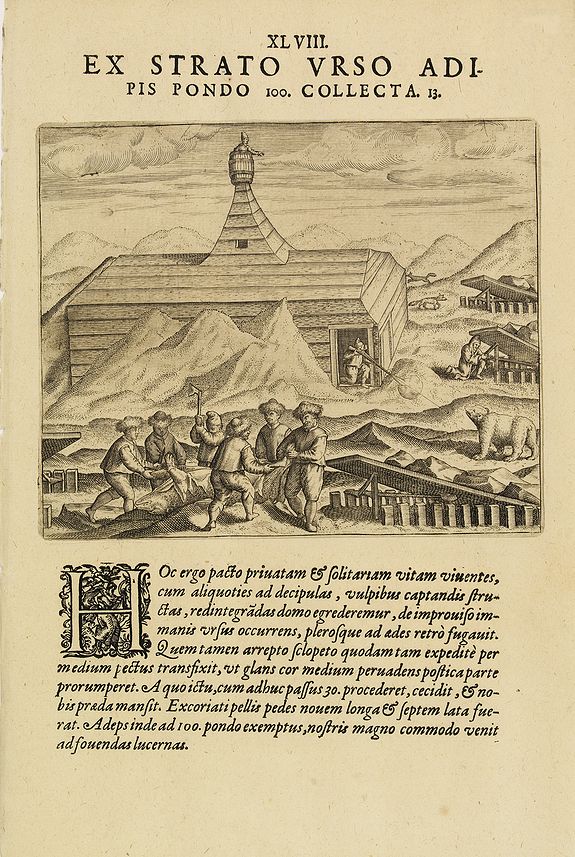 XLVIII.
EX STRATO VRSO ADI-
PIS PONDO 100. COLLECTA. 13.
HOc ergo pacto priuatam & ſolitariam vitam viuentes,
cum aliquoties ad decipulas, vulpibus captandis ſtru-
ctas, redintegrãdas domo egrederemur, de improuiſo im-
manis vrſus occurrens, pleroſque ad ædes retrò fugauit.
Quem tamen arrepto ſclopeto quodam tam expeditè per
medium pectus transfixit, vt glans cor medium peruadens poſtica parte
prorumperet. A quo ictu, cum adhuc paſſus 30. procederet, cecidit, & no-
bis præda manſit. Excoriati pellis pedes nouem longa & ſeptem lata fue-
rat. Adeps inde ad 100. pondo exemptus, noſtris magno commodo venit
ad fouendas lucernas.